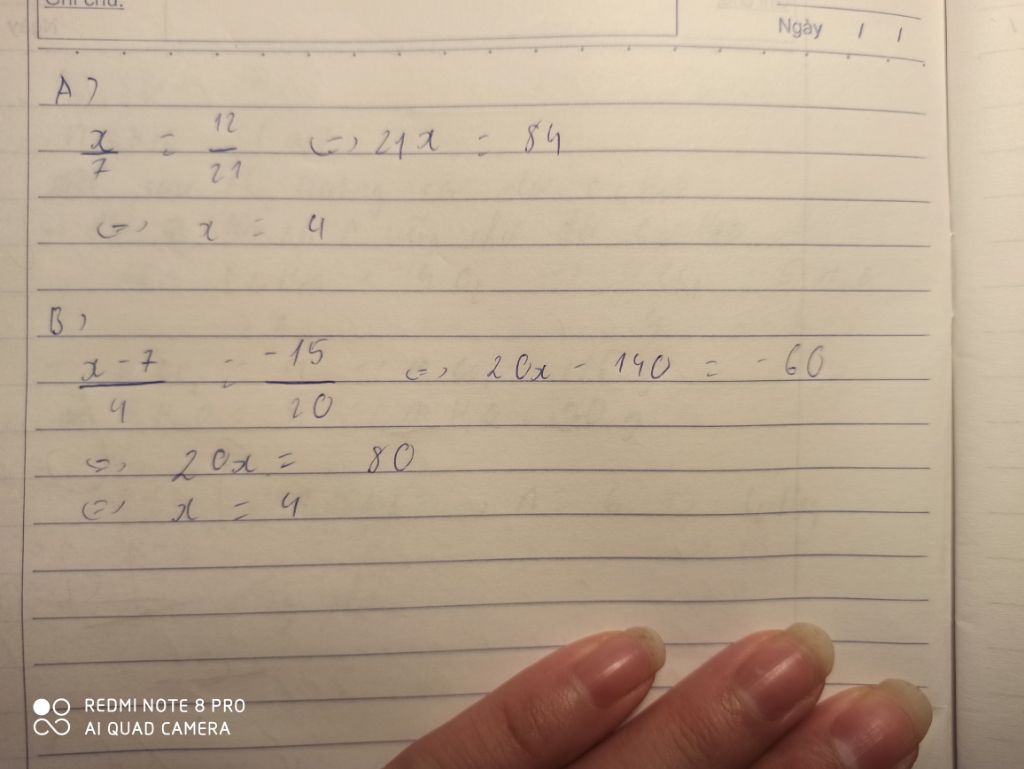 Ghi chú:
Ngày / /
A)
x/7 = 12/21 <=> 21x = 84
<=> x = 4
B)
x - 7/4 = -15/20 <=> 20x - 140 = -60
<=> 20x = 80
<=> x = 4
REDMI NOTE 8 PRO
AI QUAD CAMERA